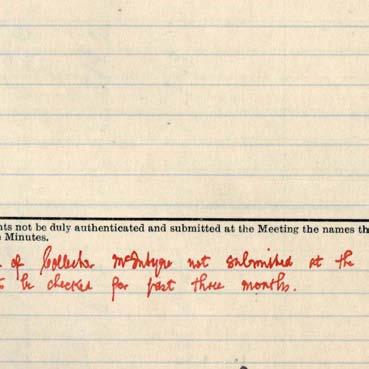 nts not be duly authenticated and submitted at the Meeting the names th
Minutes.
of Collector McIntyre not submitted at the
be checked for past three months.